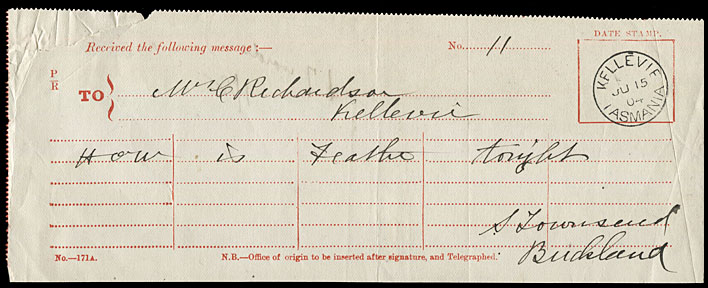 DATE STAMP.
Received the following message :— No. 11
P
R
TO Mr C Richardson
Kellevie
KELLEVIE
JU 15
04
TASMANIA
How is tonight
S Townsend
Buckland
No.—171A. N.B.—Office of origin to be inserted after signature, and Telegraphed.